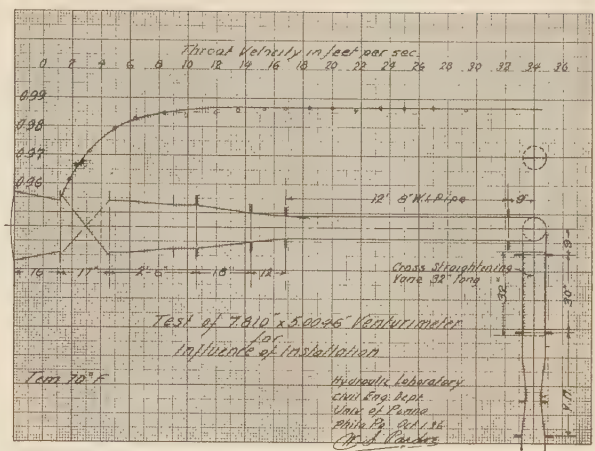 Throat Velocity in feet per sec.
0 2 4 6 8 10 12 14 16 18 20 22 24 26 28 30 32 34 36
0.99
0.98
0.97
0.96
12' 8" W.I. Pipe
9"
16" 17" 2' 6" 18" 12"
Cross Straightening
Vane 32" long
32"
9"
30"
V.M.
Test of 7.810" x 5.0046" Venturimeter
for
Influence of Installation
Tem 70° F
Hydraulic Laboratory
Civil Eng. Dept.
Univ of Penna
Phila Pa. Oct 1 36
W S Pardoe